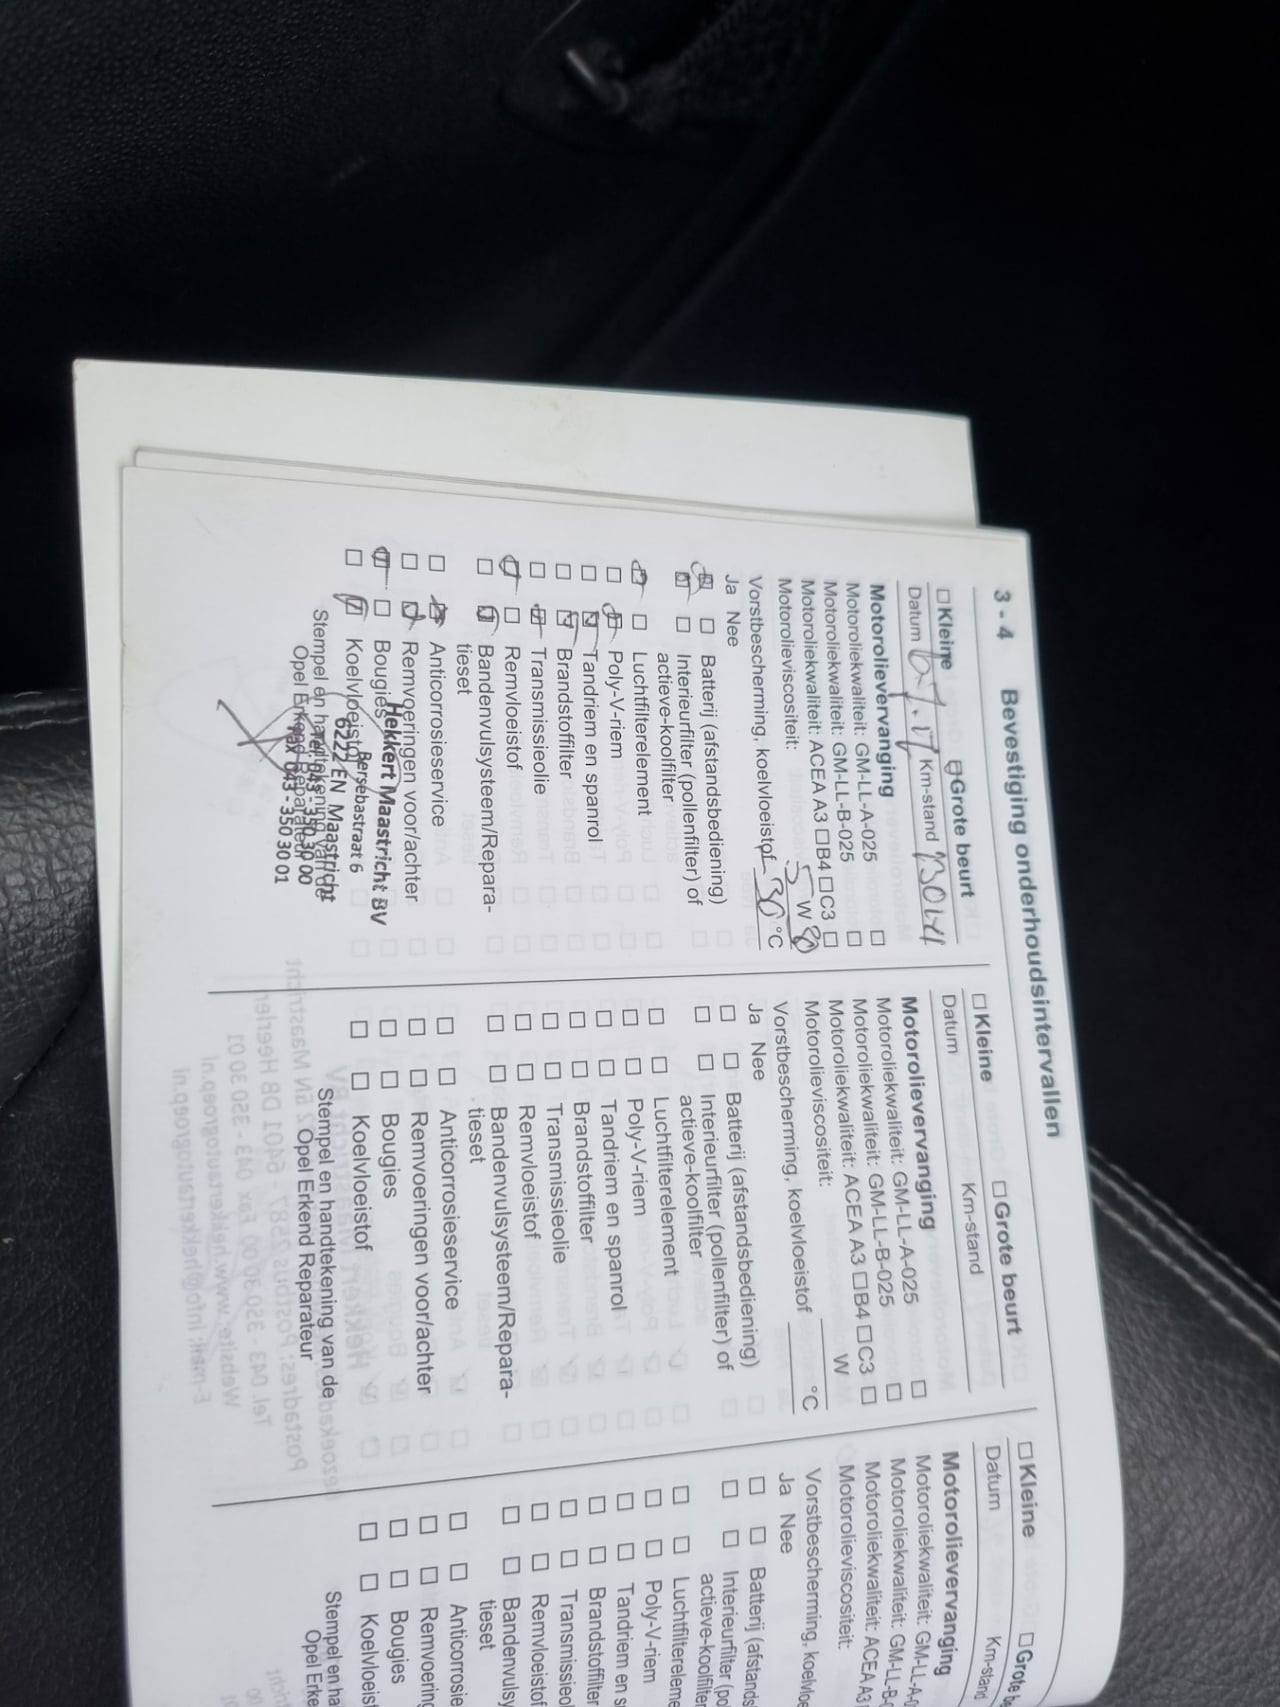 3 - 4 Bevestiging onderhoudsintervallen
Kleine Grote beurt
Datum Km-stand
Motorolievervanging
Motoroliekwaliteit: GM-LL-A-025
Motoroliekwaliteit: GM-LL-B-025
Motoroliekwaliteit: ACEA A3 B4 C3
Motorolieviscositeit: 5 W
Vorstbescherming, koelvloeistof -30 °C
Ja Nee
Batterij (afstandsbediening)
Interieurfilter (pollenfilter) of
actieve-koolfilter
Luchtfilterelement
Poly-V-riem
Tandriem en spanrol
Brandstoffilter
Transmissieolie
Remvloeistof
Bandenvulsysteem/Repara-
tieset
Anticorrosieservice
Remvoeringen voor/achter
Bougies
Koelvloeistof
Stempel en handtekening van de
Opel Erkend Reparateur
Hekkert Maastricht BV
Bersebastraat 6
6222 EN Maastricht
Tel. 043 - 350 30 00
Fax 043 - 350 30 01
Kleine Grote beurt
Datum Km-stand
Motorolievervanging
Motoroliekwaliteit: GM-LL-A-025
Motoroliekwaliteit: GM-LL-B-025
Motoroliekwaliteit: ACEA A3 B4 C3
Motorolieviscositeit: W
Vorstbescherming, koelvloeistof °C
Ja Nee
Batterij (afstandsbediening)
Interieurfilter (pollenfilter) of
actieve-koolfilter
Luchtfilterelement
Poly-V-riem
Tandriem en spanrol
Brandstoffilter
Transmissieolie
Remvloeistof
Bandenvulsysteem/Repara-
tieset
Anticorrosieservice
Remvoeringen voor/achter
Bougies
Koelvloeistof
Stempel en handtekening van de
Opel Erkend Reparateur
Kleine Grote
Datum Km-stand
Motorolievervanging
Motoroliekwaliteit: GM-LL-A-
Motoroliekwaliteit: GM-LL-B-
Motoroliekwaliteit: ACEA A3
Motorolieviscositeit:
Vorstbescherming, koelvloe
Ja Nee
Batterij (afstands
Interieurfilter (po
actieve-koolfilter
Luchtfiltereleme
Poly-V-riem
Tandriem en s
Brandstoffilter
Transmissieol
Remvloeistof
Bandenvulsy
tieset
Anticorrosie
Remvoering
Bougies
Koelvloeist
Stempel en ha
Opel Erke